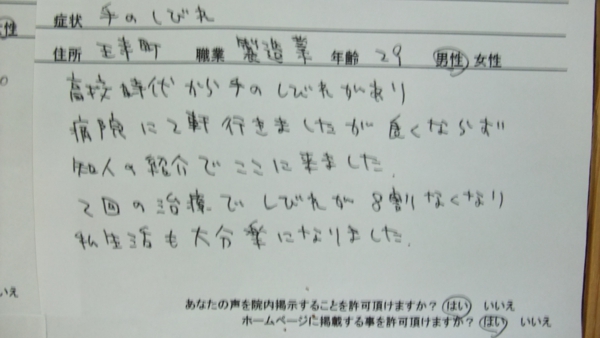 症状 手のしびれ
住所 玉東町 職業 製造業 年齢 29 男性 女性
高校時代から手のしびれがあり
病院に2軒行きましたが良くならず
知人の紹介でここに来ました。
2回の治療でしびれが8割なくなり
私生活も大分楽になりました。
あなたの声を院内掲示することを許可頂けますか? はい いいえ
ホームページに掲載する事を許可頂けますか? はい いいえ